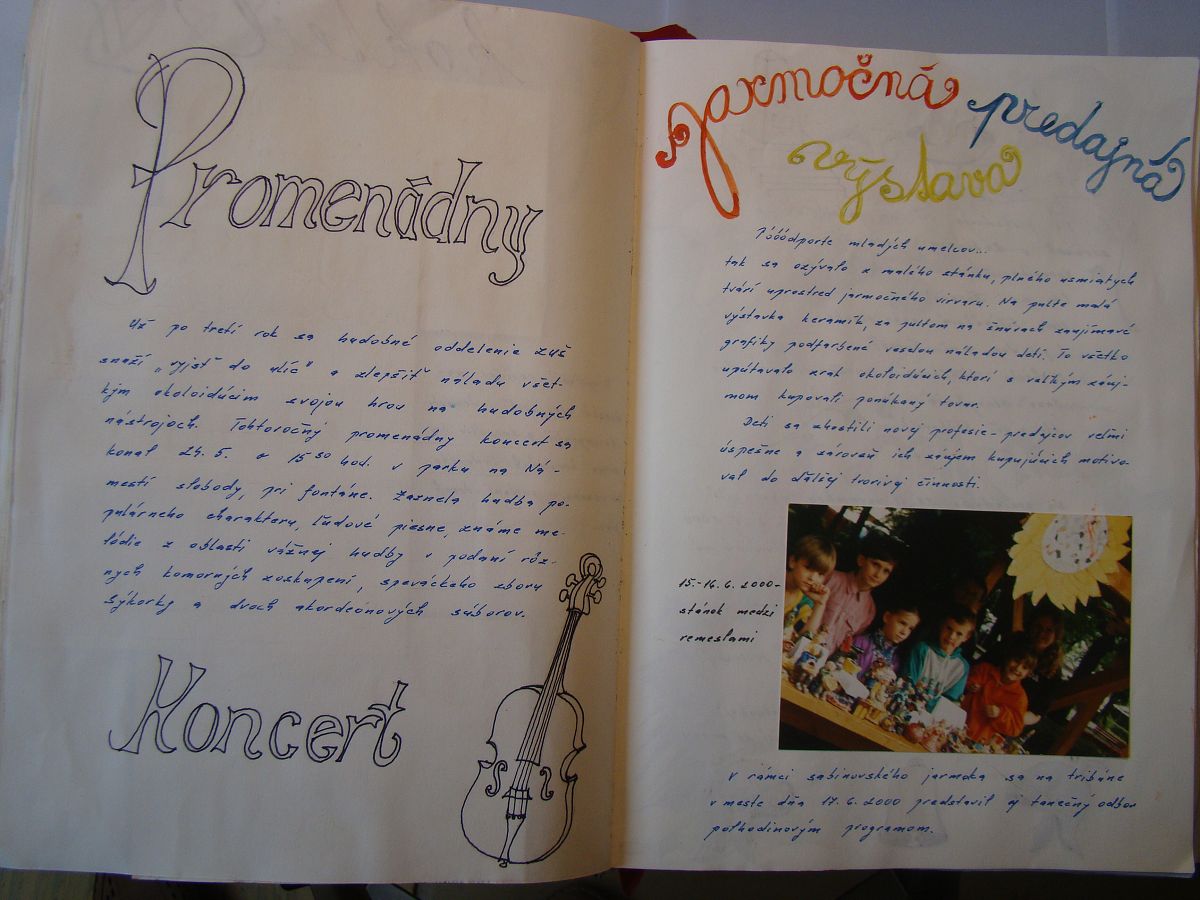 Promenádny
Už po tretí rok sa hudobné oddelenie ZUŠ
snaží „vyjsť do ulíc" a zlepšiť náladu všet-
kým okoloidúcim svojou hrou na hudobných
nástrojoch. Tohtoročný promenádny koncert sa
konal 24.5. o 15³⁰ hod. v parku na Ná-
mestí slobody, pri fontáne. Zaznela hudba po-
pulárneho charakteru, ľudové piesne, známe me-
lódie z oblasti vážnej hudby v podaní rôz-
nych komorných zoskupení, speváckeho zboru
Sýkorky a dvoch akordeónových súborov.
Koncert
Jarmočná predajná
výstava
Póóódporte mladých umelcov...
tak sa ozývalo z malého stánku, plného usmiatych
tvárí uprostred jarmočného virvaru. Na pulte malá
výstavka keramík, za pultom na šnúrach zaujímavé
grafiky podfarbené veselou náladou detí. To všetko
upútavalo zrak okoloidúcich, ktorí s veľkým záuj-
mom kupovali ponúkaný tovar.
Deti sa zhostili novej profesie-predajcov veľmi
úspešne a zároveň ich záujem kupujúcich motivo-
val do ďalšej tvorivej činnosti.
15.-16.6.2000-
stánok medzi
remeslami
V rámci sabinovského jarmoku sa na tribúne
v meste dňa 17.6.2000 predstavil aj tanečný odbor
polhodinovým programom.